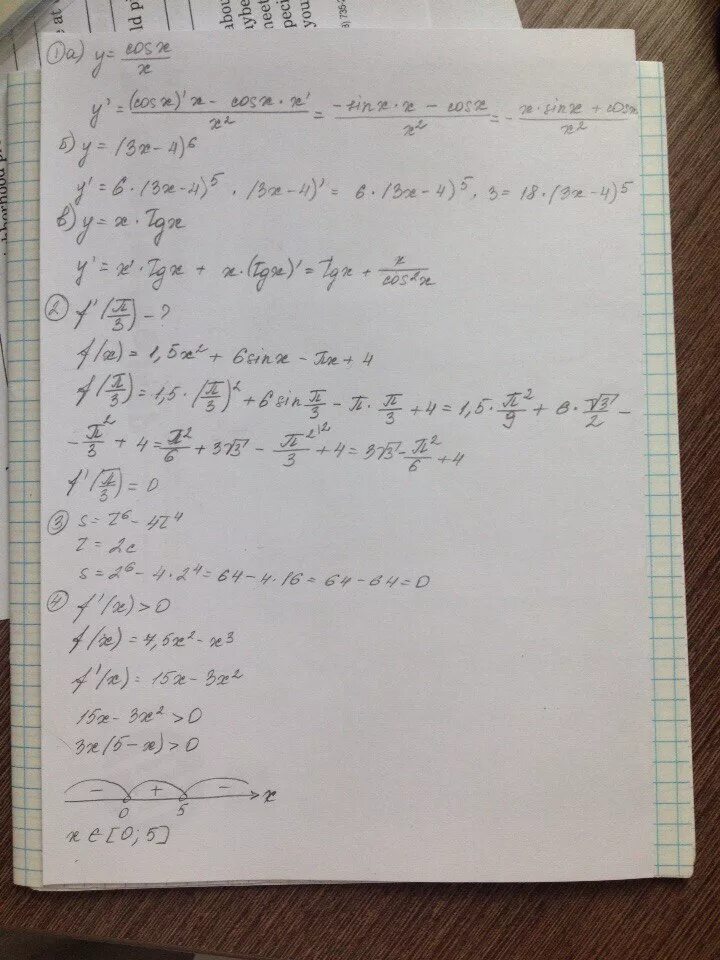 ① а) y = cosx / x
y' = ((cosx)'x - cosx · x') / x² = (-sinx · x - cosx) / x² = - (x · sinx + cosx) / x²
б) y = (3x-4)⁶
y' = 6 · (3x-4)⁵ · (3x-4)' = 6 · (3x-4)⁵ · 3 = 18 · (3x-4)⁵
в) y = x · tgx
y' = x' · tgx + x · (tgx)' = tgx + x / cos²x
② f'(π/3) - ?
f(x) = 1,5x² + 6sinx - πx + 4
f(π/3) = 1,5 · (π/3)² + 6 sin π/3 - π · π/3 + 4 = 1,5 · π²/9 + 6 · √3/2 -
- π²/3 + 4 = π²/6 + 3√3 - π²/3 + 4 = 3√3 - π²/6 + 4
f'(π/3) = 0
③ s = t⁶ - 4t⁴
t = 2c
s = 2⁶ - 4 · 2⁴ = 64 - 4 · 16 = 64 - 64 = 0
④ f'(x) > 0
f(x) = 7,5x² - x³
f'(x) = 15x - 3x²
15x - 3x² > 0
3x(5-x) > 0
- + -
0 5 x
x ∈ [0; 5]